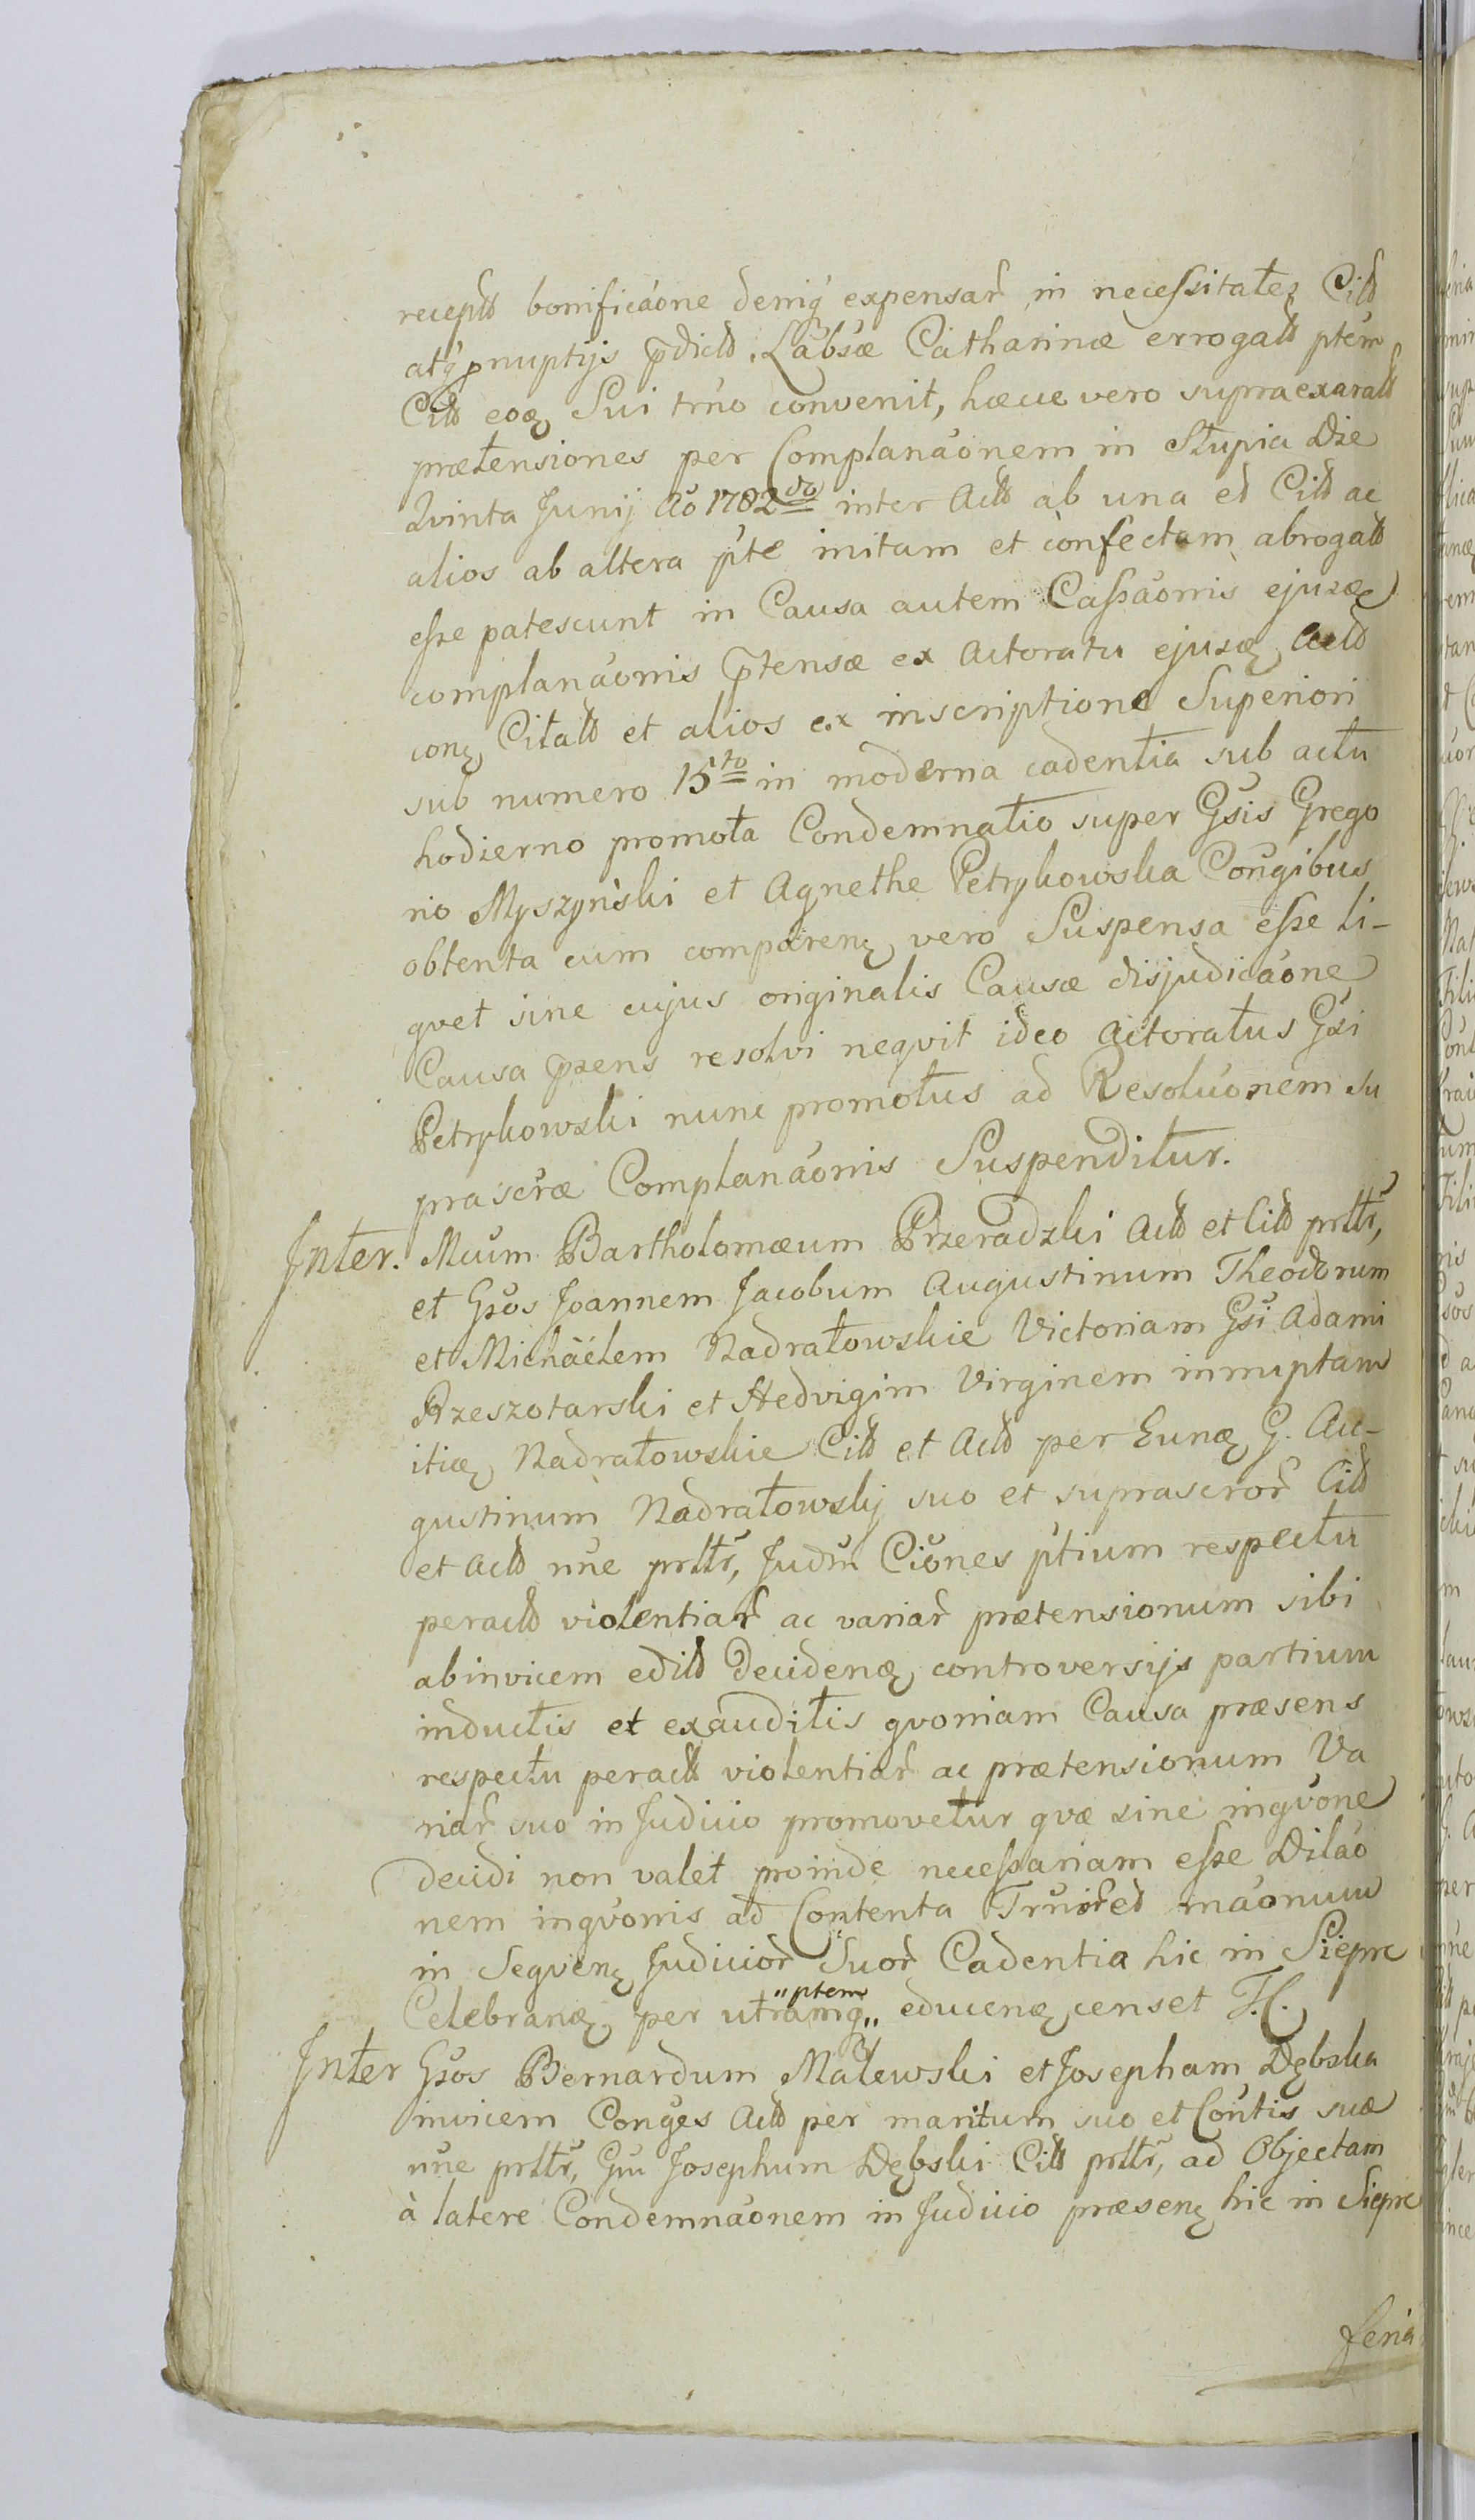 receptt bonificaone deniq expensar in necessitatez Citt
atq pnuptijs pdictt Labsæ Catharinæ errogatt ptem
Citt eoq Sui trno convenit, hæcce vero supraexaratt
prætensiones per Complanaonem in Stupia Die
Qvinta Junij Ao 1782do inter Actt ab una et Citt ac
alios ab altera pte initam et confectam abrogatt
esse patescunt in Causa autem Cassaonis ejusq
complanaonis ptensæ ex Actoratu ejusq Actt
conq Citatt et alios ex inscriptione Superiori
sub numero 15to in moderna cadentia sub actu
hodierno promota Condemnatio super Gsis Grego
rio Myszyński et Agnethe Petrykowska Congibus
obtenta cum comparenq vero Suspensa esse li-
qvet sine cujus originalis Causæ disjudicaone
Causa psens resolvi neqvit ideo Actoratus Gsi
Petrykowski nunc promotus ad Resoluonem su
prascræ Complanaonis Suspenditur.
Inter. Mcum Bartholomæum Przeradzki Actt et Citt prltr,
et Gsos Joannem Jacobum Augustinum Theodorum
et Michäelem Nadratowskie Victoriam Gsi Adami
Rzeszotarski et Hedvigim Virginem innuptam
itiq Nadratowskie Citt et Actt per Eunq G. Au-
gustinum Nadratowskj suo et suprascror Citt
et Actt nne prltr, Judm Ciones ptium respectu
peractt violentiar ac variar prætensionum sibi
abinvicem editt Decidenq controversijs partium
inductis et exauditis qvoniam Causa præsens
respectu peractt violentiar ac prætensionum Va
riar suo in Judicio promovetur qvæ sine inqvone
decidi non valet proinde necessariam esse Dilao
nem inqvonis ad Contenta Trnor et maonum
in Seqvenq Judicior Suor Cadentia hic in Sieprc
Celebranq per utramq „ptem„ educenq censet T.C.
Inter Gsos Bernardum Malewski et Josepham Dębska
invicem Conges Actt per maritum suo et Contis suæ
nne prltr, Gm Josephum Dębski Citt prltr, ad Objectam
à latere Condemnaonem in Judicio præsenq hic in Sieprc
feria